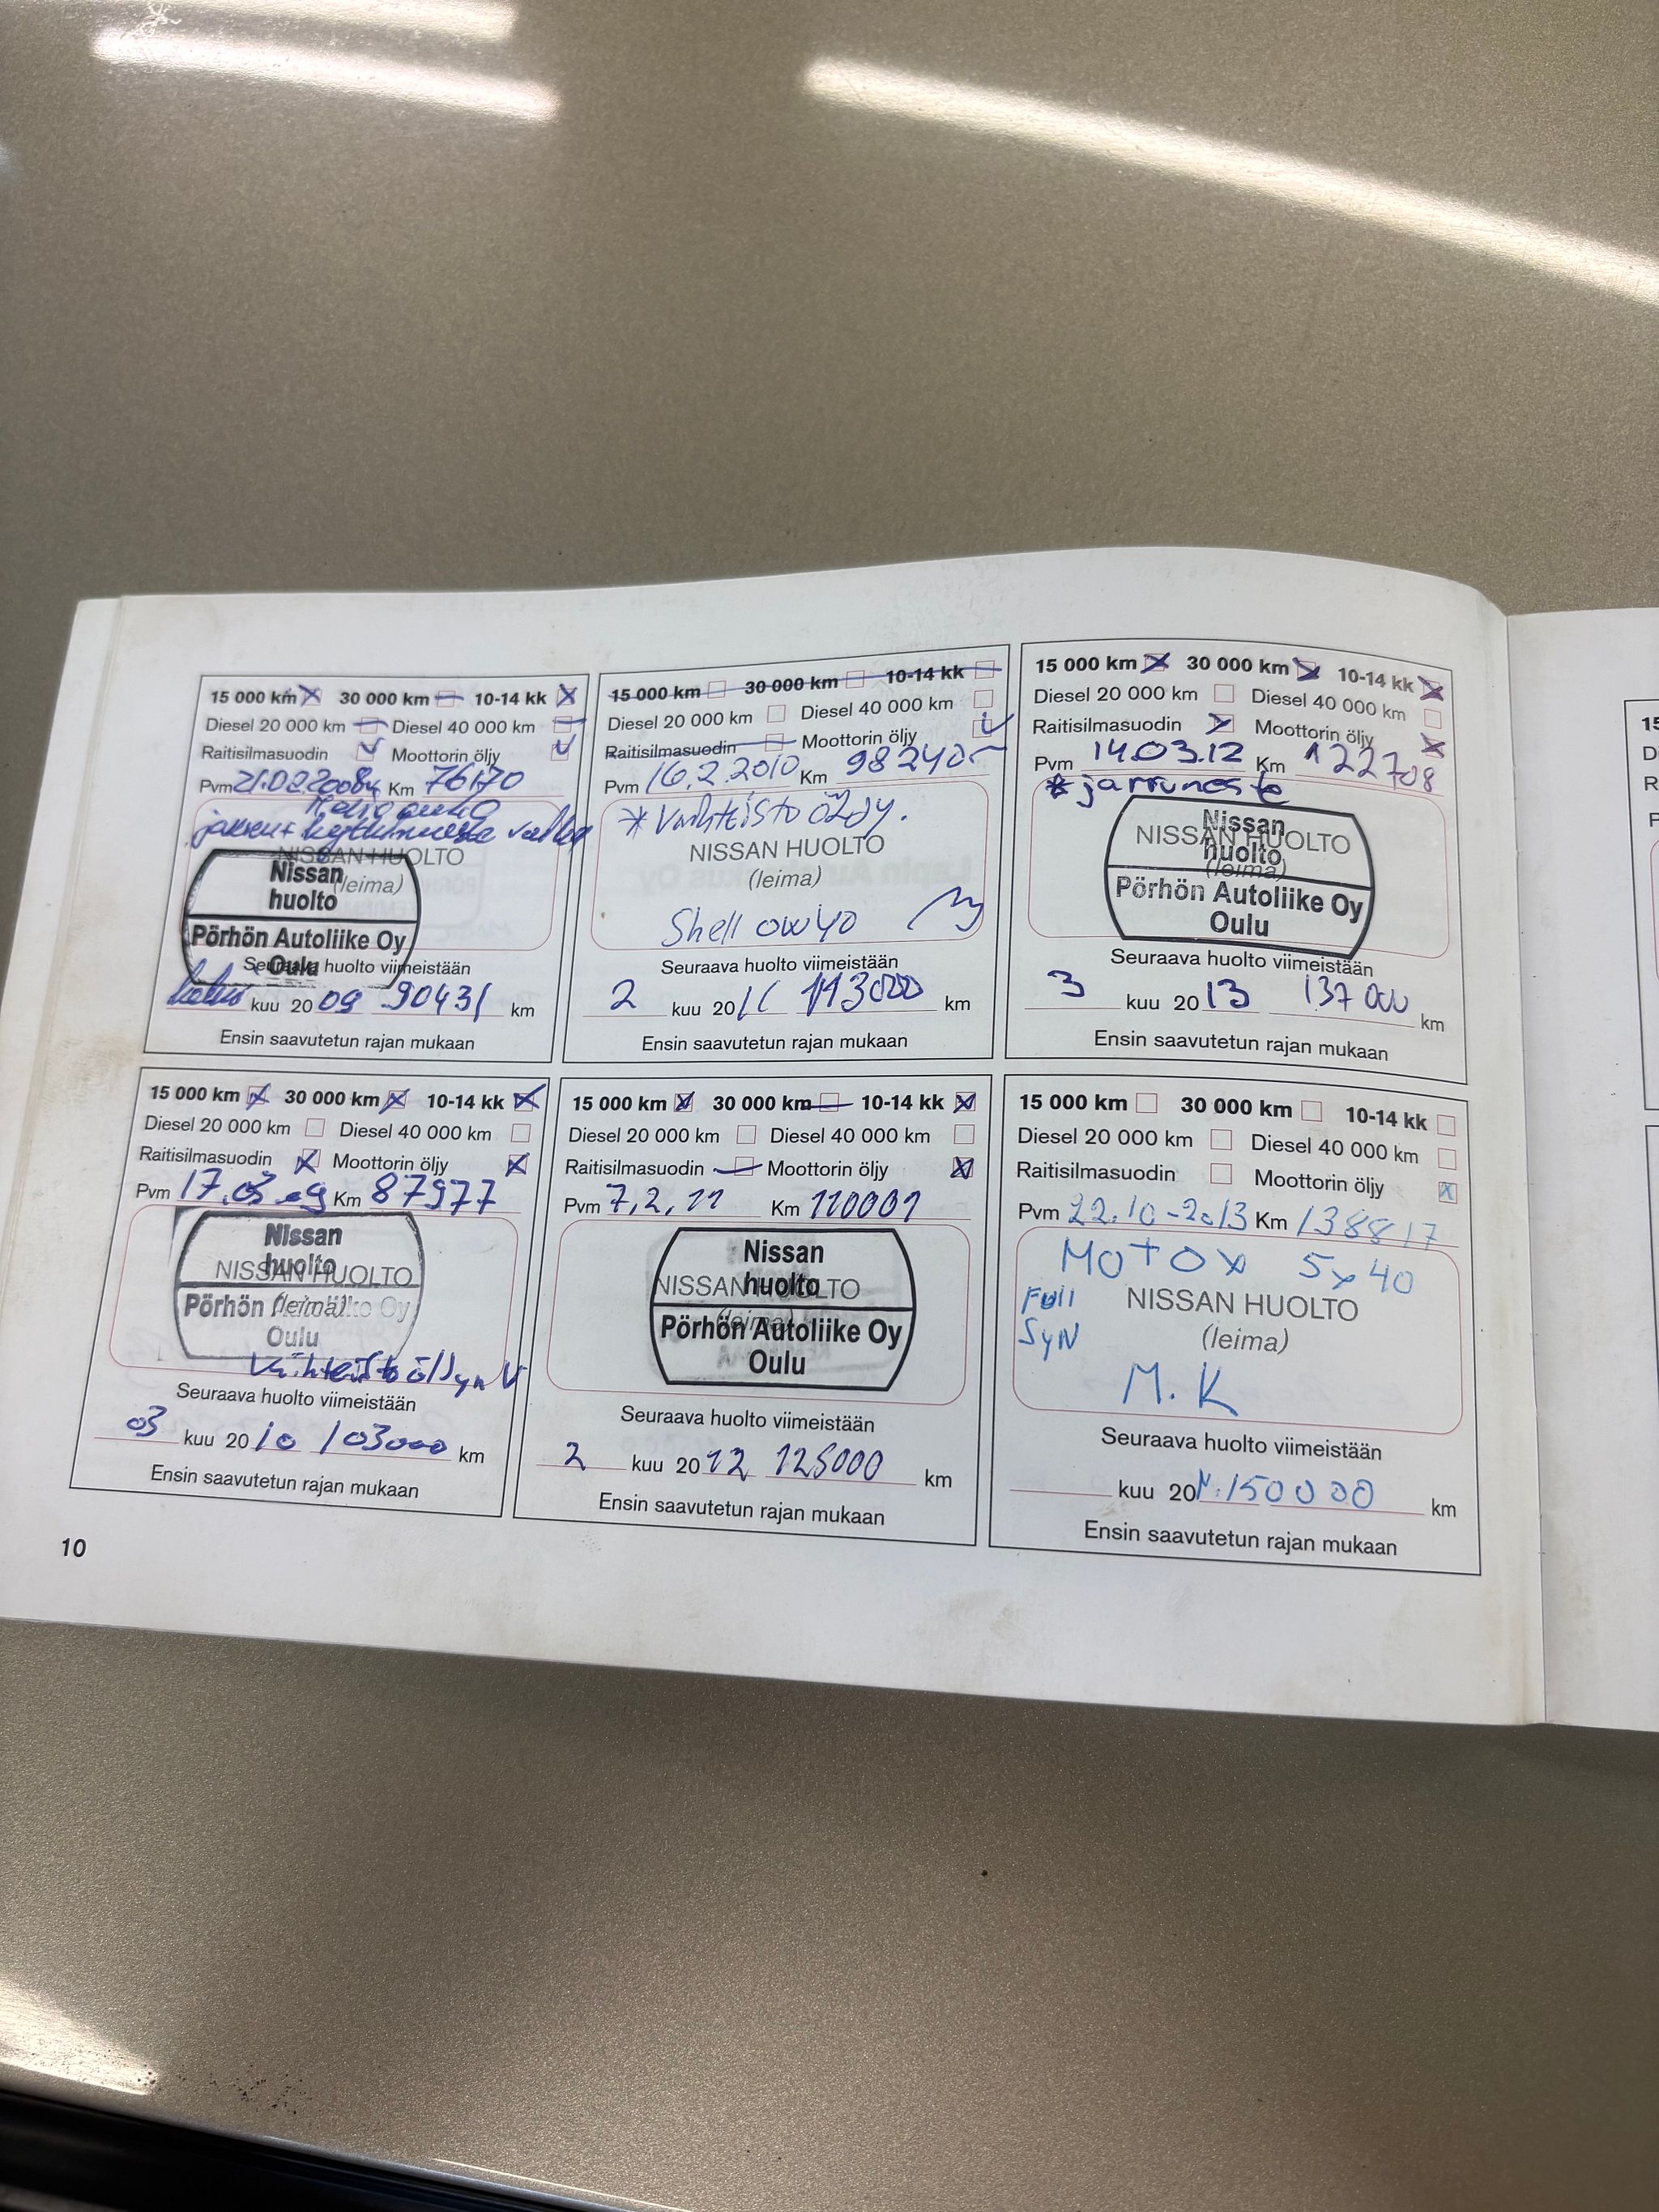 15 000 km 30 000 km 10-14 kk
Diesel 20 000 km Diesel 40 000 km
Raitisilmasuodin Moottorin öljy
Pvm Km 76170
NISSAN HUOLTO
(leima)
Nissan
huolto
Pörhön Autoliike Oy
Oulu
Seuraava huolto viimeistään
kuu 20 09 90431 km
Ensin saavutetun rajan mukaan
15 000 km 30 000 km 10-14 kk
Diesel 20 000 km Diesel 40 000 km
Raitisilmasuodin Moottorin öljy
Pvm 17.03.09 Km 87977
Nissan
huolto
NISSAN HUOLTO
Pörhön Autoliike Oy
(leima)
Oulu
Vaihteistoöljyn V
Seuraava huolto viimeistään
03 kuu 20 10 103000 km
Ensin saavutetun rajan mukaan
15 000 km 30 000 km 10-14 kk
Diesel 20 000 km Diesel 40 000 km
Raitisilmasuodin Moottorin öljy
Pvm 16.2.2010 Km 98240
* Vaihteisto öljy.
NISSAN HUOLTO
(leima)
Shell 0W40
Seuraava huolto viimeistään
2 kuu 20 11 113000 km
Ensin saavutetun rajan mukaan
15 000 km 30 000 km 10-14 kk
Diesel 20 000 km Diesel 40 000 km
Raitisilmasuodin Moottorin öljy
Pvm 7,2,11 Km 110001
Nissan
huolto
NISSAN HUOLTO
(leima)
Pörhön Autoliike Oy
Oulu
Seuraava huolto viimeistään
2 kuu 20 12 125000 km
Ensin saavutetun rajan mukaan
15 000 km 30 000 km 10-14 kk
Diesel 20 000 km Diesel 40 000 km
Raitisilmasuodin Moottorin öljy
Pvm 14.03.12 Km 122708
* jarruneste
Nissan
NISSAN HUOLTO
huolto
(leima)
Pörhön Autoliike Oy
Oulu
Seuraava huolto viimeistään
3 kuu 20 13 137000 km
Ensin saavutetun rajan mukaan
15 000 km 30 000 km 10-14 kk
Diesel 20 000 km Diesel 40 000 km
Raitisilmasuodin Moottorin öljy
Pvm 22.10-2013 Km 138817
MOTOX 5x40
Full
SYN
NISSAN HUOLTO
(leima)
M.K
Seuraava huolto viimeistään
kuu 20 N.150000 km
Ensin saavutetun rajan mukaan
10